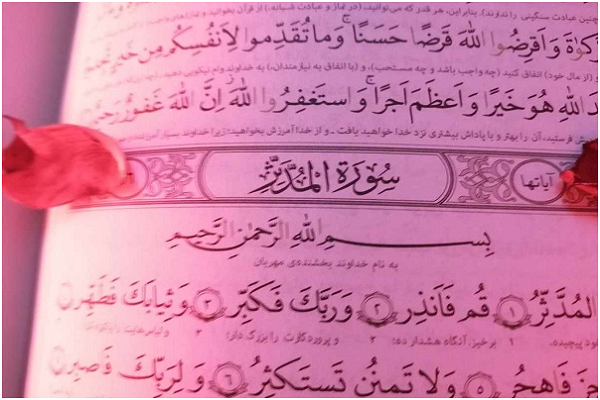 چنین عبادت سنگینی را ندارند). بنابراین، هر قدر که می‌توانید، (در نماز و عبادت شبانه،) از قرآن بخوانید و نمازهای
زَكَوٰةَ وَاَقْرِضُوا اللّٰهَ قَرْضًا حَسَنًا وَمَا تُقَدِّمُوا لِاَنْفُسِكُمْ مِنْ خَيْرٍ
و (از مال خود) انفاق کنید (چه واجب باشد و چه مستحب)، و (با انفاق به نیازمندان،) به خداوند وام نیکویی دهید.
اللّٰهِ هُوَ خَيْرًا وَاَعْظَمَ اَجْرًا وَاسْتَغْفِرُوا اللّٰهَ اِنَّ اللّٰهَ غَفُورٌ
فرستید، آن را بهتر و با پاداش بیشتری نزد خدا خواهید یافت. و از خدا آمرزش بخواهید؛ زیرا خداوند بسیار
سُورَةُ الْمُدَّثِّرِ آیاتها
بِسْمِ اللّٰهِ الرَّحْمٰنِ الرَّحِيمِ
به نام خداوند بخشنده‌ی مهربان
الْمُدَّثِّرُ ١ قُمْ فَاَنْذِرْ ٢ وَرَبَّكَ فَكَبِّرْ ٣ وَثِيَابَكَ فَطَهِّرْ
خود پیچیده. ١ برخیز، آنگاه هشدار ده؛ ٢ و پروردگارت را بزرگ دار؛ ٣ و لباس‌هایت را
فَاهْجُرْ ٥ وَلَا تَمْنُنْ تَسْتَكْثِرُ ٦ وَلِرَبِّكَ فَاصْبِرْ